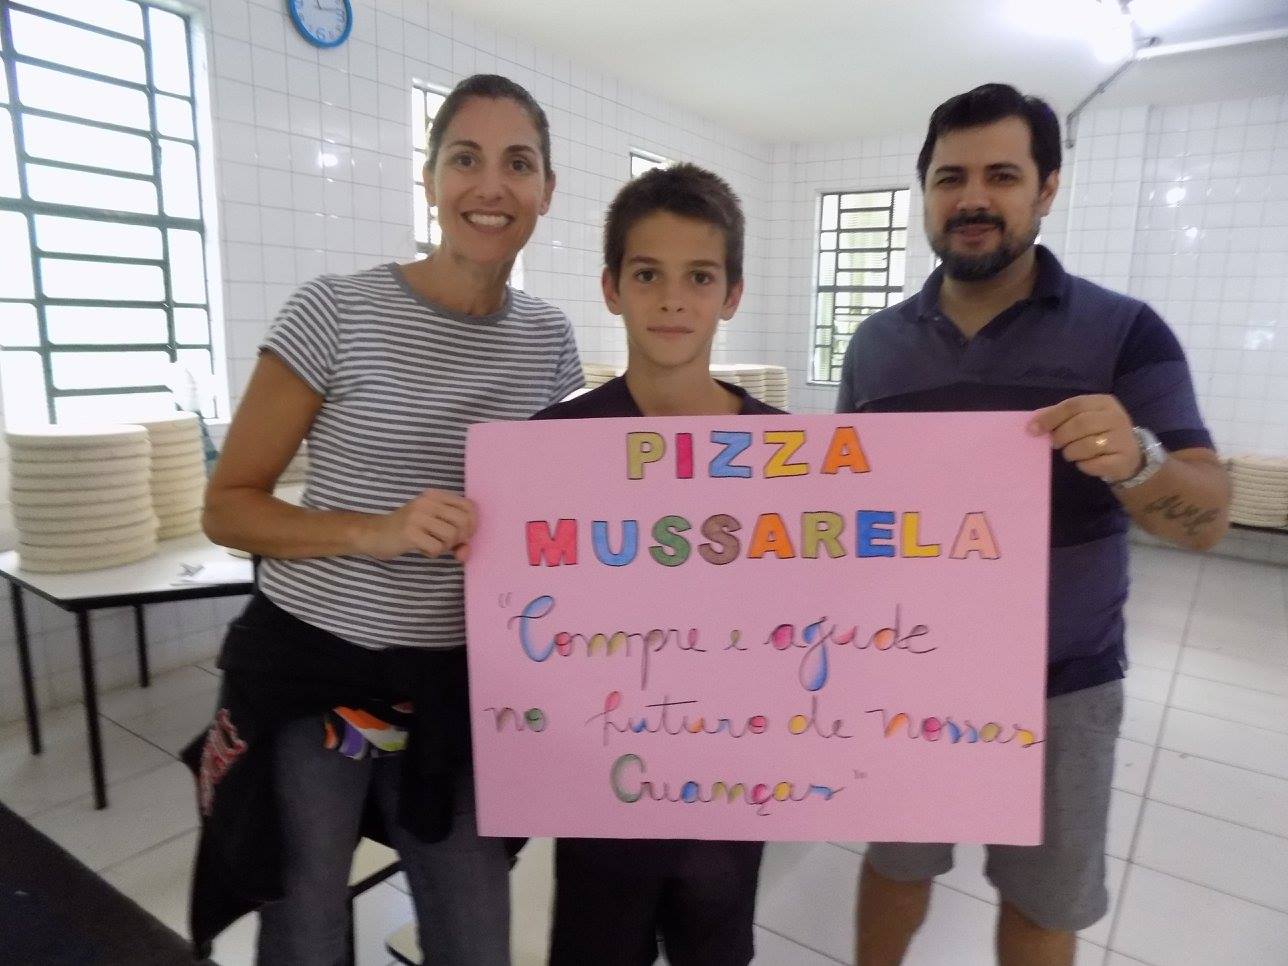 PIZZA
MUSSARELA
"Compre e agude
no futuro de nossas
Crianças"